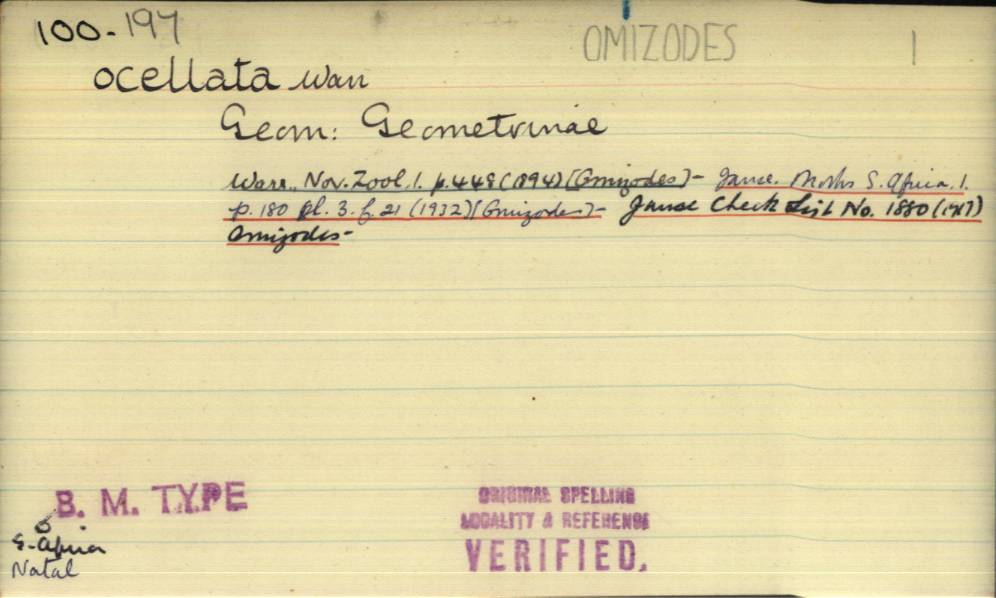 100-197
OMIZODES 1
ocellata Warr
Geom: Geometrinae
Warr. Nov. Zool. 1. p. 448 (1894) [Omizodes] - Janse. Moths S. Africa. 1.
p. 180 pl. 3. f. 21 (1932) [Omizodes] - Janse Check List No. 1880 (1917)
Omizodes -
B. M. TYPE
S. Africa
Natal
ORIGINAL SPELLING
LOCALITY & REFERENCE
VERIFIED.